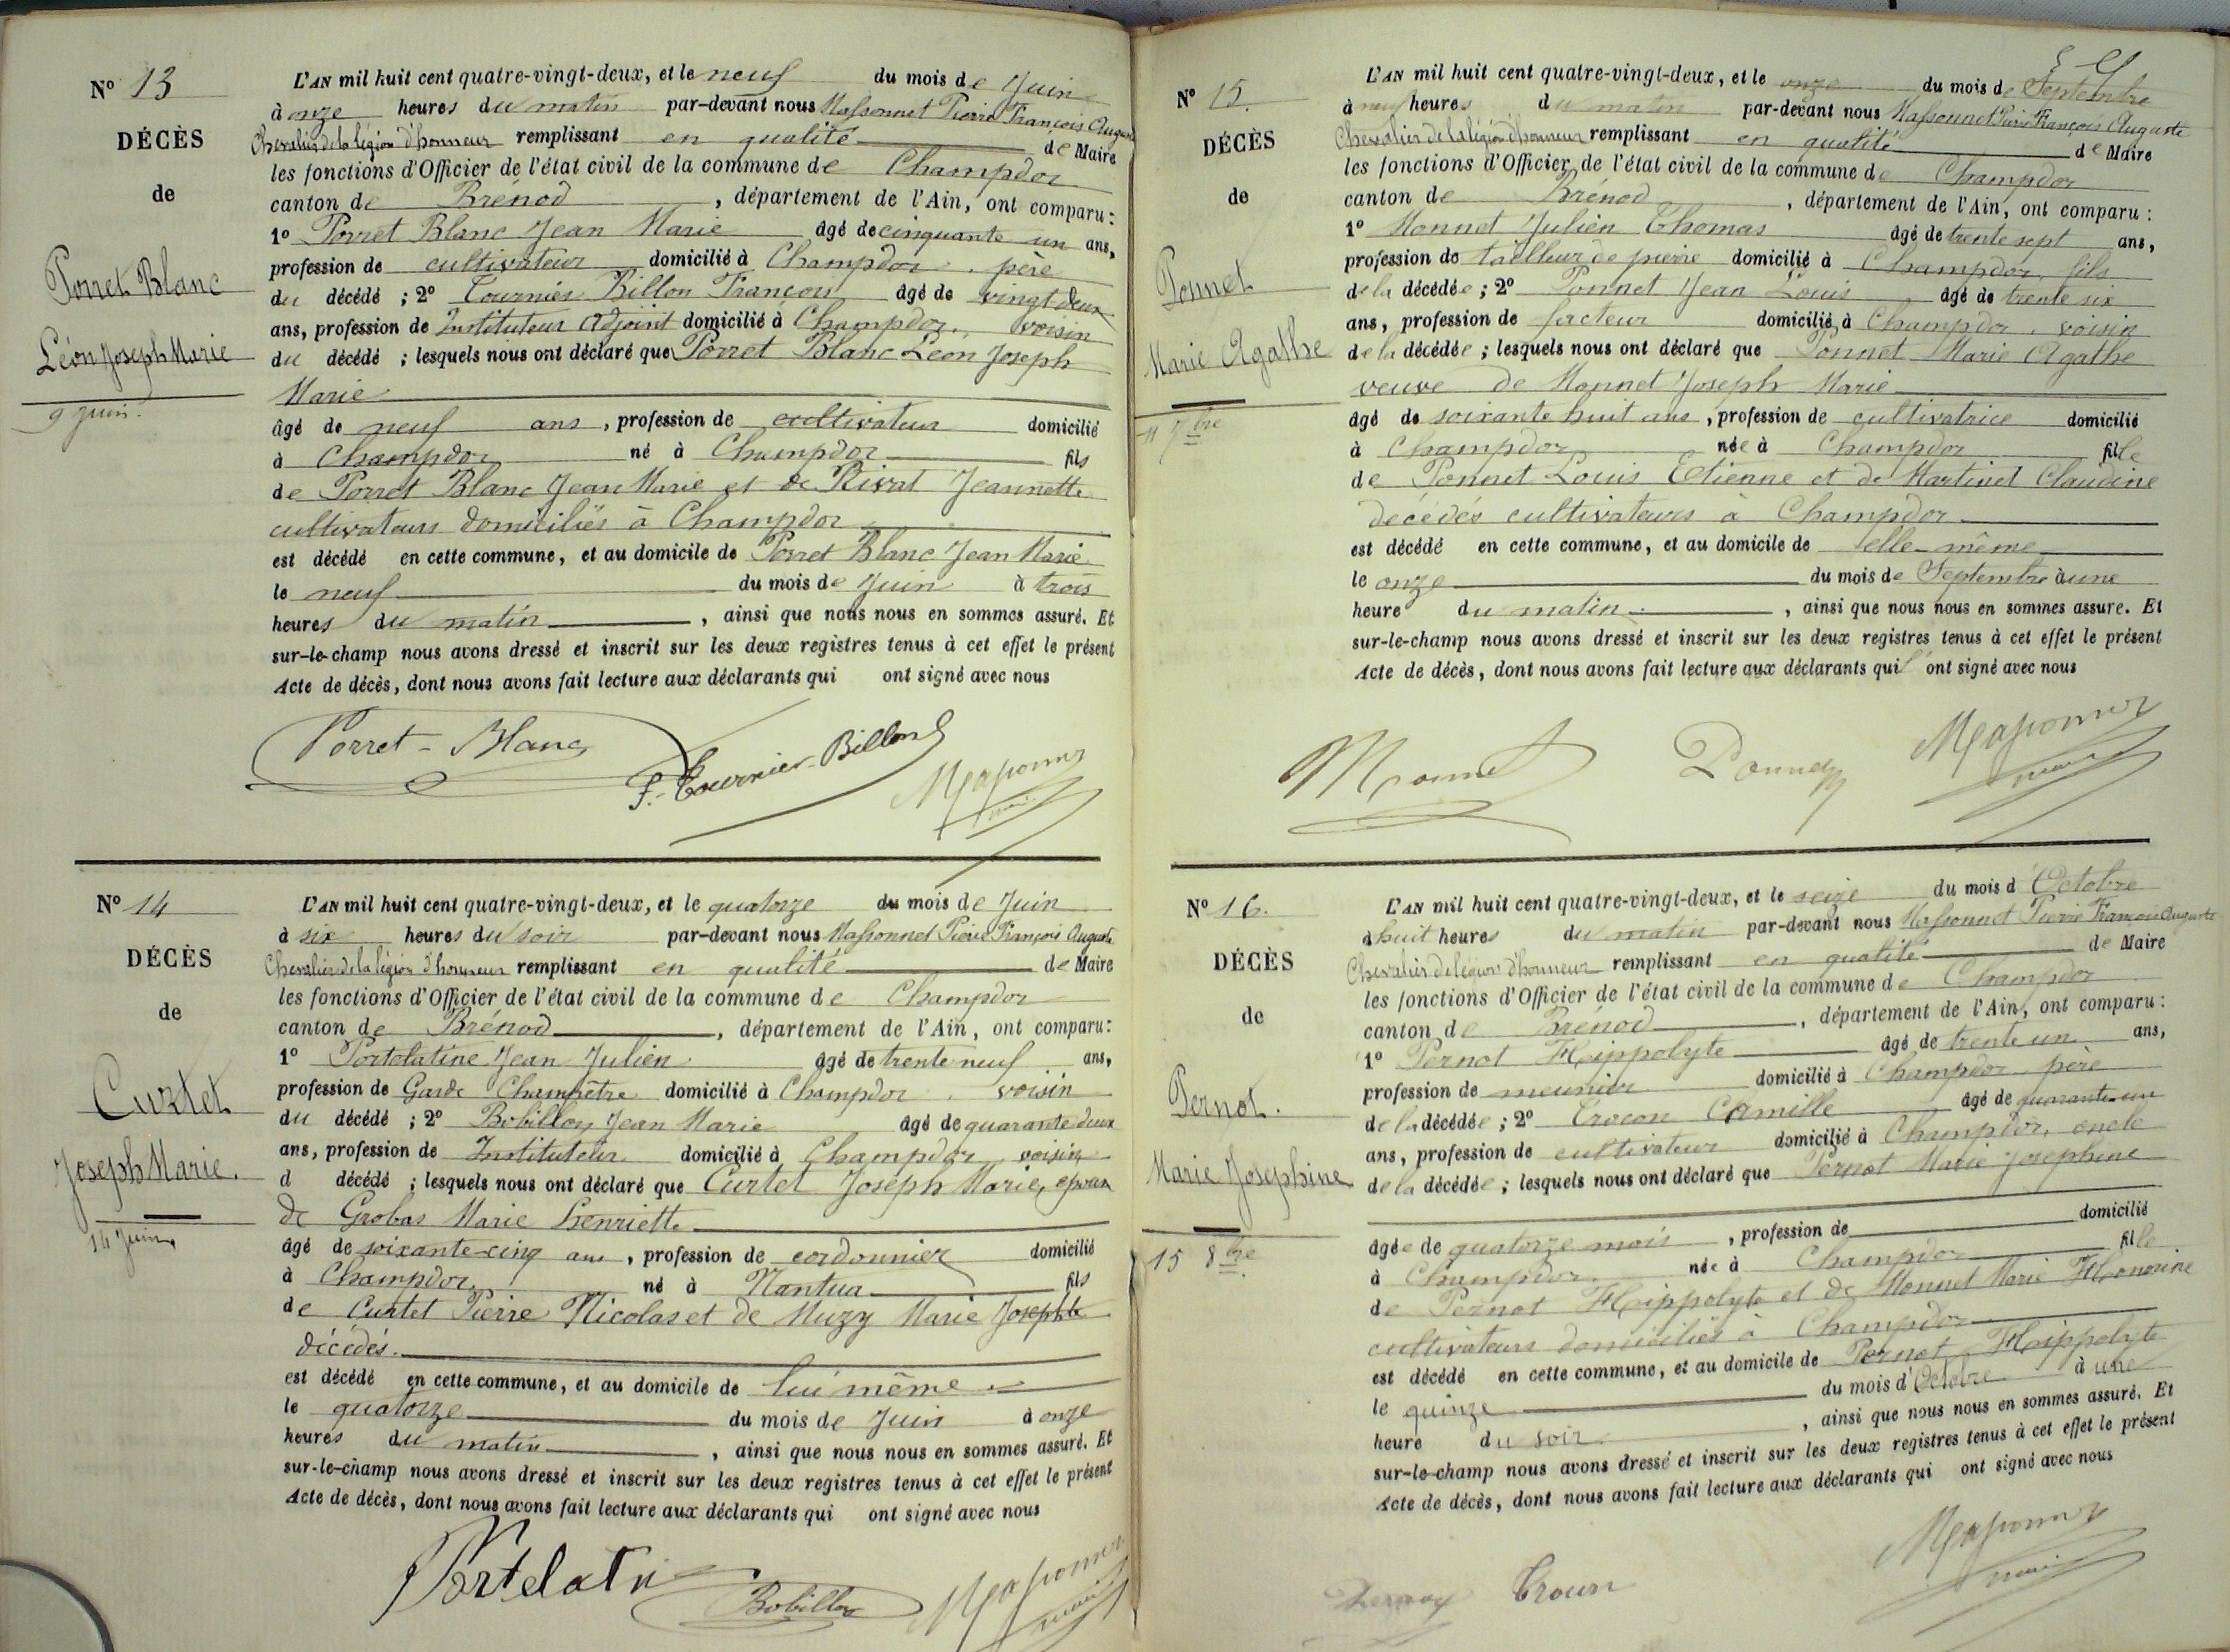 N° 13
DÉCÈS
de
Porret Blanc
Léon Joseph Marie
9 juin.
L'AN mil huit cent quatre-vingt-deux, et le neuf du mois de Juin
à onze heures du matin par-devant nous Massonnet Pierre François Auguste
Chevalier de la légion d'honneur remplissant en qualité de Maire
les fonctions d'Officier de l'état civil de la commune de Champdor
canton de Brénod, département de l'Ain, ont comparu :
1° Porret Blanc Jean Marie âgé de cinquante un ans,
profession de cultivateur domicilié à Champdor, père
du décédé ; 2° Tournier Billon François âgé de vingt deux
ans, profession de Instituteur Adjoint domicilié à Champdor, voisin
du décédé ; lesquels nous ont déclaré que Porret Blanc Léon Joseph
Marie
âgé de neuf ans, profession de cultivateur domicilié
à Champdor né à Champdor fils
de Porret Blanc Jean Marie et de Rivat Jeannette
cultivateurs domiciliés à Champdor
est décédé en cette commune, et au domicile de Porret Blanc Jean Marie
le neuf du mois de Juin à trois
heures du matin, ainsi que nous nous en sommes assuré. Et
sur-le-champ nous avons dressé et inscrit sur les deux registres tenus à cet effet le présent
Acte de décès, dont nous avons fait lecture aux déclarants qui ont signé avec nous
Porret-Blanc
F. Tournier-Billon
Massonnet
maire
N° 14
DÉCÈS
de
Curtet
Joseph Marie.
14 Juin
L'AN mil huit cent quatre-vingt-deux, et le quatorze du mois de Juin
à six heures du soir par-devant nous Massonnet Pierre François Auguste
Chevalier de la légion d'honneur remplissant en qualité de Maire
les fonctions d'Officier de l'état civil de la commune de Champdor
canton de Brénod, département de l'Ain, ont comparu :
1° Portelatine Jean Julien âgé de trente neuf ans,
profession de Garde Champêtre domicilié à Champdor, voisin
du décédé ; 2° Bobillon Jean Marie âgé de quarante deux
ans, profession de Instituteur domicilié à Champdor, voisin
d décédé ; lesquels nous ont déclaré que Curtet Joseph Marie, époux
de Grobas Marie Henriette
âgé de soixante-cinq ans, profession de cordonnier domicilié
à Champdor né à Nantua fils
de Curtet Pierre Nicolas et de Muzy Marie Josephte
décédés.
est décédé en cette commune, et au domicile de lui même
le quatorze du mois de Juin à onze
heures du matin, ainsi que nous nous en sommes assuré. Et
sur-le-champ nous avons dressé et inscrit sur les deux registres tenus à cet effet le présent
Acte de décès, dont nous avons fait lecture aux déclarants qui ont signé avec nous
Portelatin
Bobillon
Massonnet
maire
N° 15.
DÉCÈS
de
Ponnet
Marie Agathe
11 7bre
L'AN mil huit cent quatre-vingt-deux, et le onze du mois de Septembre
à neuf heures du matin par-devant nous Massonnet Pierre François Auguste
Chevalier de la légion d'honneur remplissant en qualité de Maire
les fonctions d'Officier de l'état civil de la commune de Champdor
canton de Brénod, département de l'Ain, ont comparu :
1° Monnet Julien Thomas âgé de trente sept ans,
profession de tailleur de pierre domicilié à Champdor, fils
de la décédée ; 2° Ponnet Jean Louis âgé de trente six
ans, profession de facteur domicilié à Champdor, voisin
de la décédée ; lesquels nous ont déclaré que Ponnet Marie Agathe
veuve de Monnet Joseph Marie
âgé de soixante huit ans, profession de cultivatrice domicilié
à Champdor née à Champdor fille
de Ponnet Louis Etienne et de Martinet Claudine
décédés cultivateurs à Champdor
est décédé en cette commune, et au domicile de elle-même
le onze du mois de Septembre à une
heure du matin, ainsi que nous nous en sommes assuré. Et
sur-le-champ nous avons dressé et inscrit sur les deux registres tenus à cet effet le présent
Acte de décès, dont nous avons fait lecture aux déclarants qui ont signé avec nous
Monnet
Ponnet
Massonnet
maire
N° 16.
DÉCÈS
de
Pernot.
Marie Josephine
15 8bre
L'AN mil huit cent quatre-vingt-deux, et le seize du mois d'Octobre
à huit heures du matin par-devant nous Massonnet Pierre François Auguste
Chevalier de légion d'honneur remplissant en qualité de Maire
les fonctions d'Officier de l'état civil de la commune de Champdor
canton de Brénod, département de l'Ain, ont comparu :
1° Pernot Hippolyte âgé de trente un ans,
profession de meunier domicilié à Champdor père
de la décédée ; 2° Crocon Camille âgé de quarante un
ans, profession de cultivateur domicilié à Champdor, oncle
de la décédée ; lesquels nous ont déclaré que Pernot Marie Josephine
âgée de quatorze mois, profession de domicilié
à Champdor née à Champdor fille
de Pernot Hippolyte et de Monnet Marie Honorine
cultivateurs domiciliés à Champdor
est décédé en cette commune, et au domicile de Pernot Hippolyte
le quinze du mois d'Octobre à une
heure du soir, ainsi que nous nous en sommes assuré. Et
sur-le-champ nous avons dressé et inscrit sur les deux registres tenus à cet effet le présent
Acte de décès, dont nous avons fait lecture aux déclarants qui ont signé avec nous
Massonnet
maire